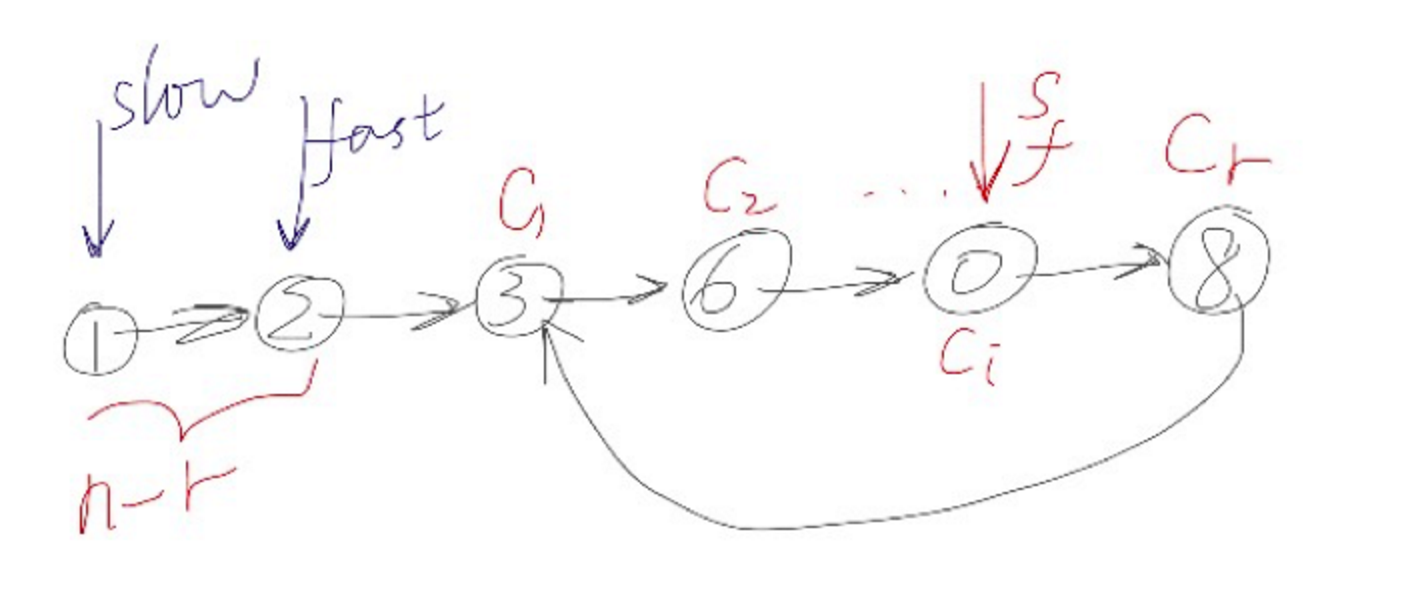 slow
fast
C1
C2
....
s
f
Cr
1
2
3
6
0
8
Ci
n-r